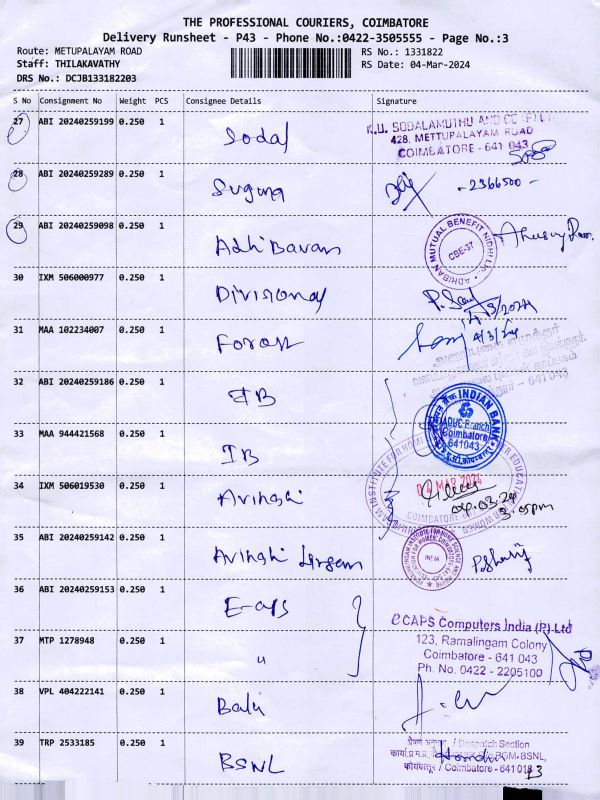 THE PROFESSIONAL COURIERS, COIMBATORE
Delivery Runsheet - P43 - Phone No.:0422-3505555 - Page No.:3
Route: METUPALAYAM ROAD
RS No.: 1331822
Staff: THILAKAVATHY
RS Date: 04-Mar-2024
DRS No.: DCJB133182203
S No Consignment No Weight PCS Consignee Details Signature
27 ABI 20240259199 0.250 1 Sodal
K.U. SODALAMUTHU AND CO (P) LTD
428, METTUPALAYAM ROAD
COIMBATORE - 641 043
28 ABI 20240259289 0.250 1 Suguna - 2366500 -
29 ABI 20240259098 0.250 1 Adhi Bavan
ADHIBAN MUTUAL BENEFIT NIDHI LTD
CBE-37
30 IXM 506000977 0.250 1 Divisional
4/3/2024
31 MAA 102234007 0.250 1 Forest
4/3/24
641043
32 ABI 20240259186 0.250 1 IB
INDIAN BANK
ADUC Branch
Coimbatore
641043
33 MAA 944421568 0.250 1 IB
34 IXM 506019530 0.250 1 Avinashi
04 MAR 2024
04.03.24
3.05pm
35 ABI 20240259142 0.250 1 Avinashi
36 ABI 20240259153 0.250 1 E-caps
eCAPS Computers India (P) Ltd
123, Ramalingam Colony
Coimbatore - 641 043
Ph. No. 0422 - 2205100
37 MTP 1278948 0.250 1 "
38 VPL 404222141 0.250 1 Balu
39 TRP 2533185 0.250 1 BSNL
प्रेषण अनुभाग / Despatch Section
BSNL,
कोयंबत्तूर / Coimbatore - 641 018